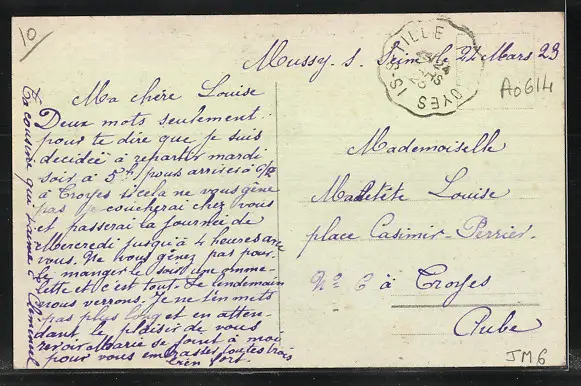 10
Mussy s. Seine le 24 Mars 23
A0614
Ma chère Louise
Deux mots seulement
pour te dire que je suis
decideé à repartir mardi
soir à 5 h. pous arriver à 6 1/2
à Troyes si cela ne vous gêne
pas je coucherai chez vous
et passerai la journeé de
Mercredi jusqu'à 4 heures avec
vous. Ne vous gênez pas pour
le manger le soir une omme-
lette et c'est tout. Le lendemain
nous verrons. Je ne t'en mets
pas plus long et en atten-
dant le plaisir de vous
revoir Marie se joint à moi
pour vous embrasser toutes trois
bien fort
Ta cousine qui t'aime
Mademoiselle
Louise
place Casimir-Perrier
No 6 à Troyes
Aube
JM6